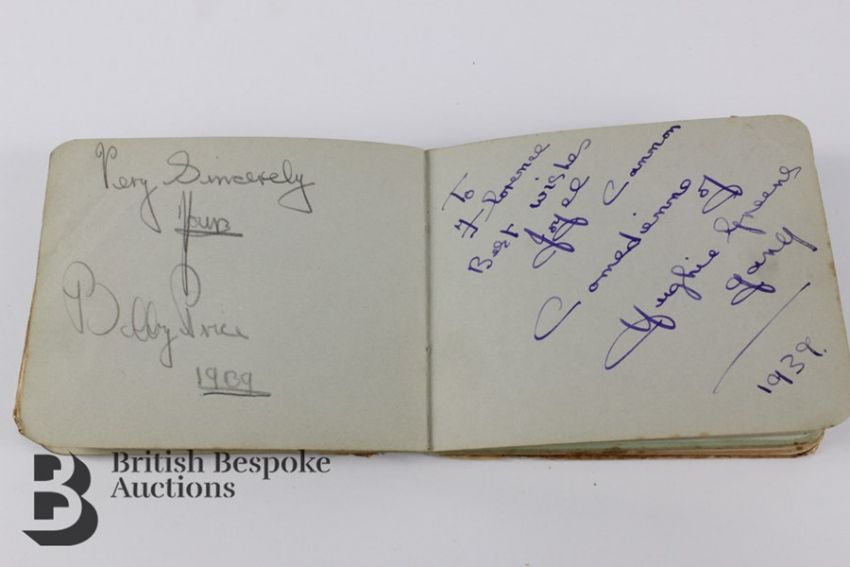 Very Sincerely
Yours
Bobby Price
1939
To
Florence
Best wishes
Joyce Cannon
Comedienne of
Hughie Greens
gang
1939.
B
British Bespoke
Auctions